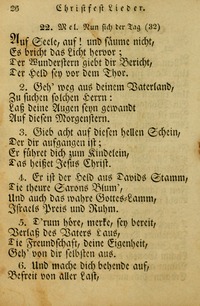 26 Christfest Lieder.
22. Mel. Nun sich der Tag (32)
Auf Seele, auf! und säume nicht,
Es bricht das Licht hervor;
Der Wunderstern giebt dir Bericht,
Der Held sey vor dem Thor.
2. Geh' weg aus deinem Vaterland,
Zu suchen solchen Herrn:
Laß deine Augen seyn gewandt
Auf diesen Morgenstern.
3. Gieb acht auf diesen hellen Schein,
Der dir aufgangen ist;
Er führet dich zum Kindelein,
Das heißet Jesus Christ.
4. Er ist der Held aus Davids Stamm,
Die theure Sarons Blum',
Und auch das wahre Gottes-Lamm,
Israels Preis und Ruhm.
5. D'rum höre, merke, sey bereit,
Verlaß des Vaters Haus,
Die Freundschaft, deine Eigenheit,
Geh' von dir selbsten aus.
6. Und mache dich behende auf,
Befreit von aller Last,